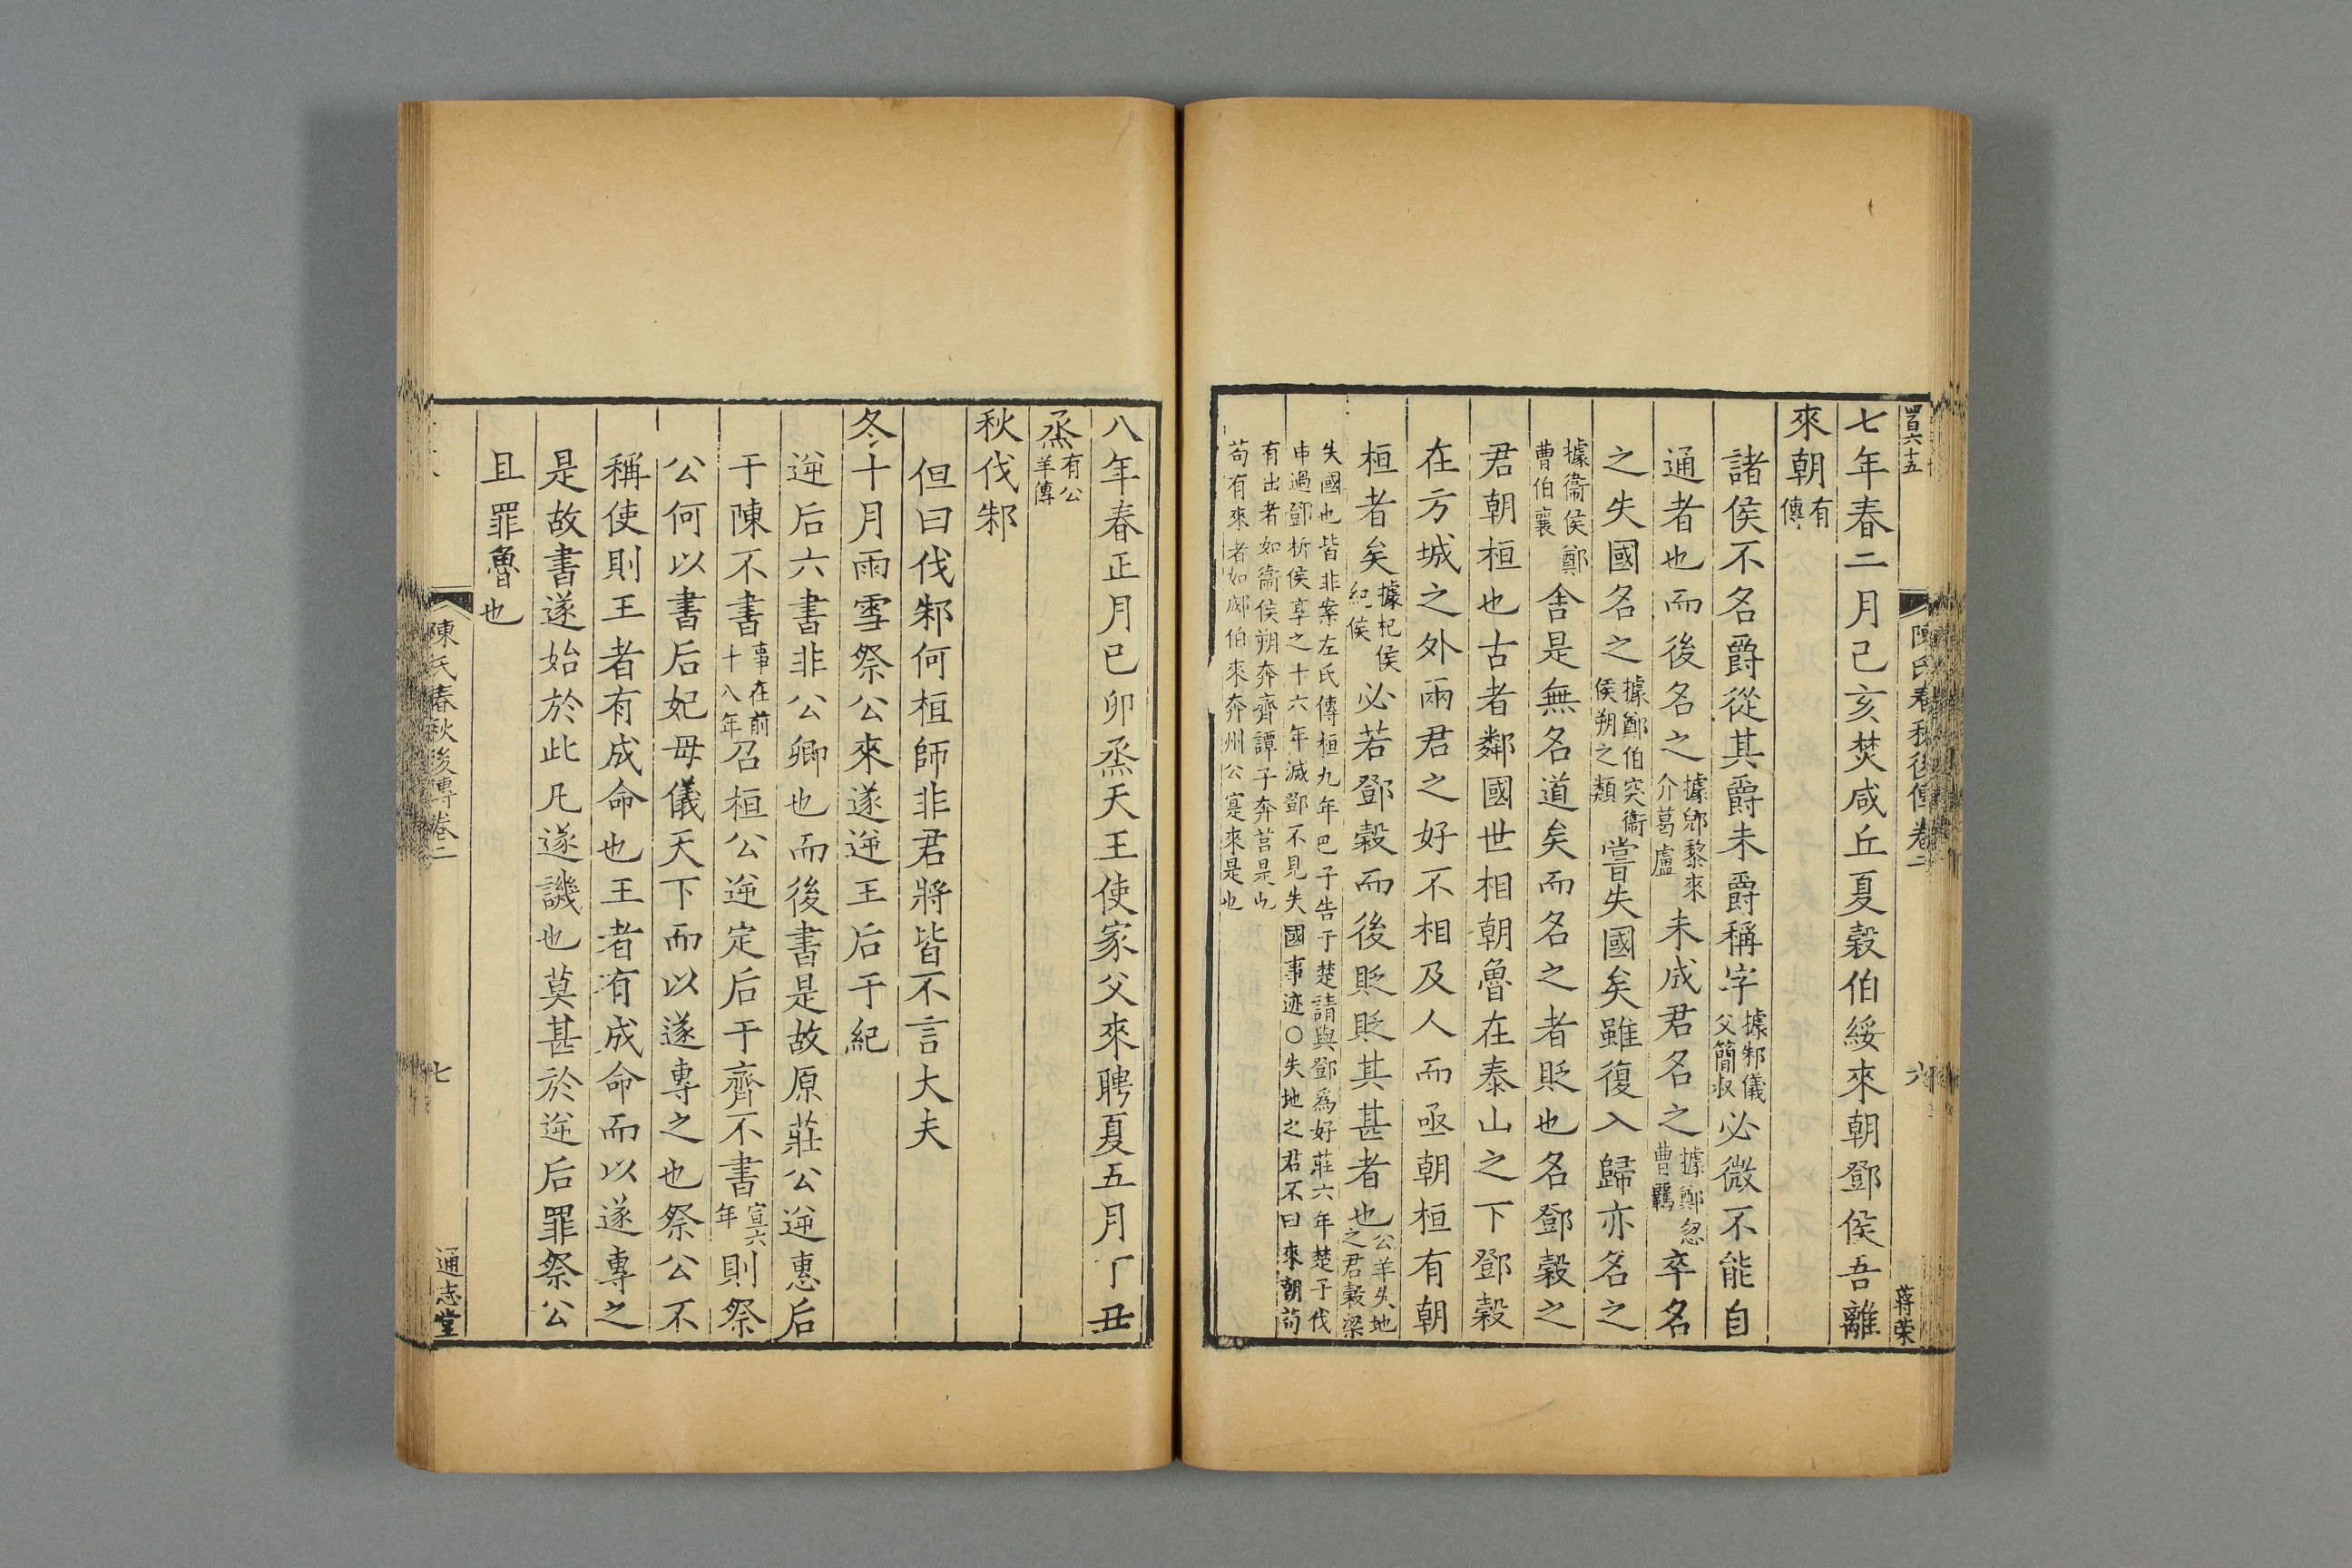 七年春二月己亥焚咸丘夏穀伯綏來朝鄧侯吾離
來朝有傳
諸侯不名爵從其爵未爵稱字據邾儀父簡叔必微不能自
通者也而後名之據郳黎來介葛盧未成君名之據鄭忽曹羈卒名
之失國名之據鄭伯突衞侯朔之類嘗失國矣雖復入歸亦名之
據衞侯鄭曹伯襄舍是無名道矣而名之者貶也名鄧穀之
君朝桓也古者鄰國世相朝魯在泰山之下鄧穀
在方城之外兩君之好不相及人而亟朝桓有朝
桓者矣據杞侯紀侯必若鄧穀而後貶貶其甚者也公羊失地之君穀梁
失國也皆非案左氏傳桓九年巴子告于楚請與鄧爲好莊六年楚子伐
申過鄧祈侯享之十六年滅鄧不見失國事迹○失地之君不曰來朝苟
有出者如衞侯朔奔齊譚子奔莒是也
苟有來者如郕伯來奔州公寔來是也
陳氏春秋後傳卷二
六
蔣荣
八年春正月己卯烝天王使家父來聘夏五月丁丑
烝有公羊傳
秋伐邾
但曰伐邾何桓師非君將皆不言大夫
冬十月雨雪祭公來遂逆王后于紀
逆后六書非公卿也而後書是故原莊公逆惠后
于陳不書事在前十八年召桓公逆定后于齊不書宣六年則祭
公何以書后妃母儀天下而以遂專之也祭公不
稱使則王者有成命也王者有成命而以遂專之
是故書遂始於此凡遂譏也莫甚於逆后罪祭公
且罪魯也
陳氏春秋後傳卷二
七
通志堂